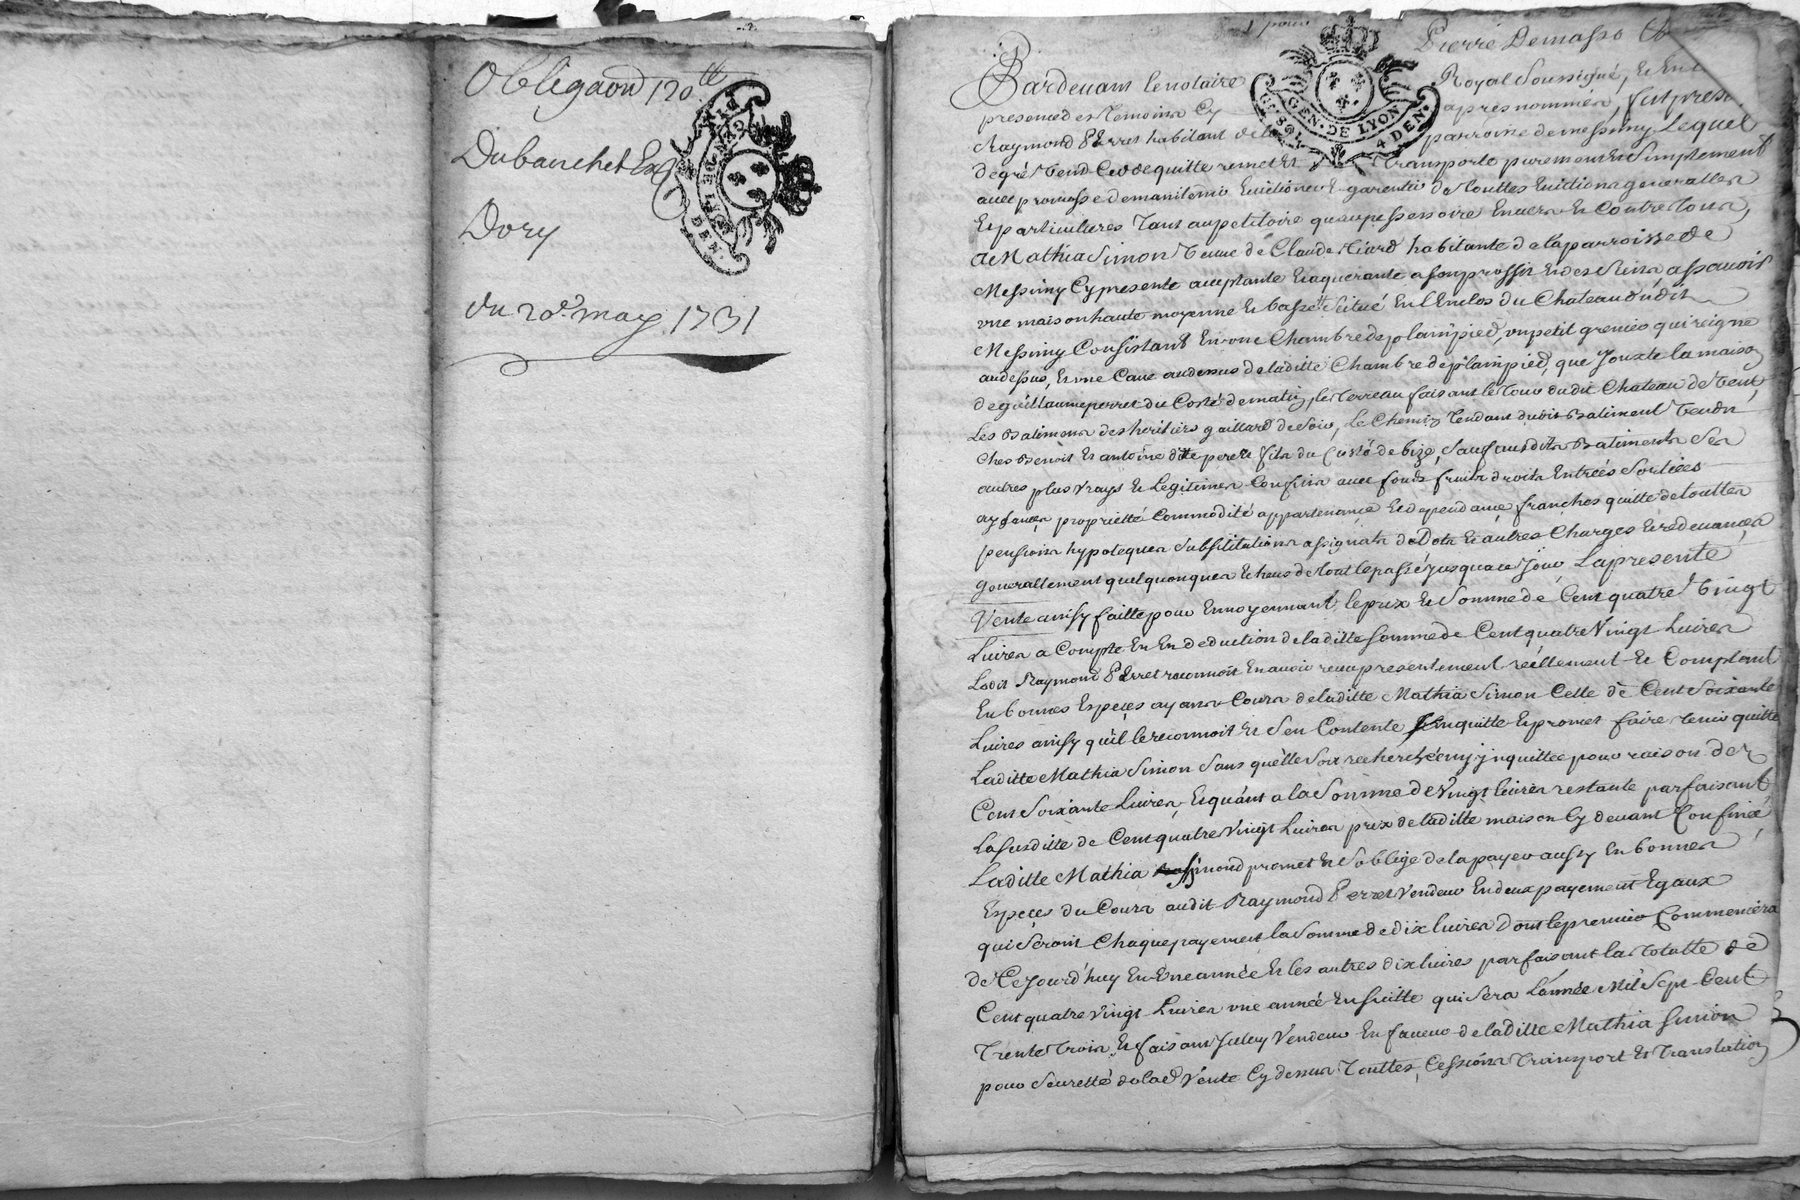 Obligaon 120ᵗᵗ
Dubanchet
Dory
du 20ᵉ. may 1731
GEN. DE LYON
4 DEN.
Pierre Demasso
Pardevant le notaire Royal Soussigné, Et En
presence des temoins Cy apres nommés, fut present
Raymond Perret habitant de la parroisse de messimy Lequel
de gré Vend Cede quitte remet Et transporte purement Et Simplement
avec promesse de maintenir Evictioner Et garentir de touttes Evictions generalles
Et particulieres tant au petitoire qu'au possessoire Envers Et Contre tous,
a Mathia Simon Veuve de Claude habitante de la parroisse de
Messimy Cy presente acceptante Et aquerante a son proffit Et des Siens a sçavoir
une maison haute moyenne Et basse Scitué En l'Enclos du Chateau dudit
Messimy Consistant En une Chambre de plainpied, un petit grenier qui reigne
au dessus, Et une Cave au dessus de laditte Chambre de plainpied, que Jouxte la maison
de guillaume perret du Costé de matin, le terreau faisant le tour dudit Chateau de Vent,
Les Batimens des heritiers gaillard de Soir, Le Chemin tendant dudit Batiment
Ches Benoit Et antoine dit perret fils du Costé de bize, Sauf ausdits Batiments Ses
autres plus vrays Et Legitimes Confins avec fonds fruits droits Entrées Sorties
aysances proprietté Commodité appartenance Et dependance franches quitte de touttes
pensions hypoteques Substitutions assignats de Dots Et autres Charges Et redevances
generallement quelquonques Echeus de tout le passé Jusqua ce Jour La presente
Vente ainsy faitte pour Et moyennant le prix Et Somme de Cent quatre Vingt
Livres a Compte Et En deduction de laditte Somme de Cent quatre Vingt Livres
Ledit Raymond Perret reconnoit En avoir receu presentement reéllement Et Comptant
En bonnes Especes ayans Cours de laditte Mathia Simon Celle de Cent Soixante
Livres ainsy qu'il le reconnoit Et S'en Contente L'en quitte Et promet faire tenir quitte
Laditte Mathia Simon Sans qu'elle Soit recherchée ny inquittée pour raison des
Cent Soixante Livres, Et quant a la Somme de Vingt livres restante parfaisant
La Susditte de Cent quatre Vingt Livres prix de laditte maison Cy devant Confinée
Laditte Mathia Simond promet Et S'oblige de la payer aussy En bonnes
Especes du Cours audit Raymond Perret Vendeur En deux payement Egaux
qui Seront Chaque payement la Somme de dix livres Dont le premier Commencera
de Cejourd'huy En Une année Et les autres dix livres parfaisant la totalle de
Cent quatre Vingt Livres une année Ensuitte qui Sera L'année Mil Sept Cent
Trente Trois, Et faisant Vendeur En faveur de laditte Mathia Simon
pour Seuretté de lad Vente Cy dessus Touttes Cessions Transport Et Translation